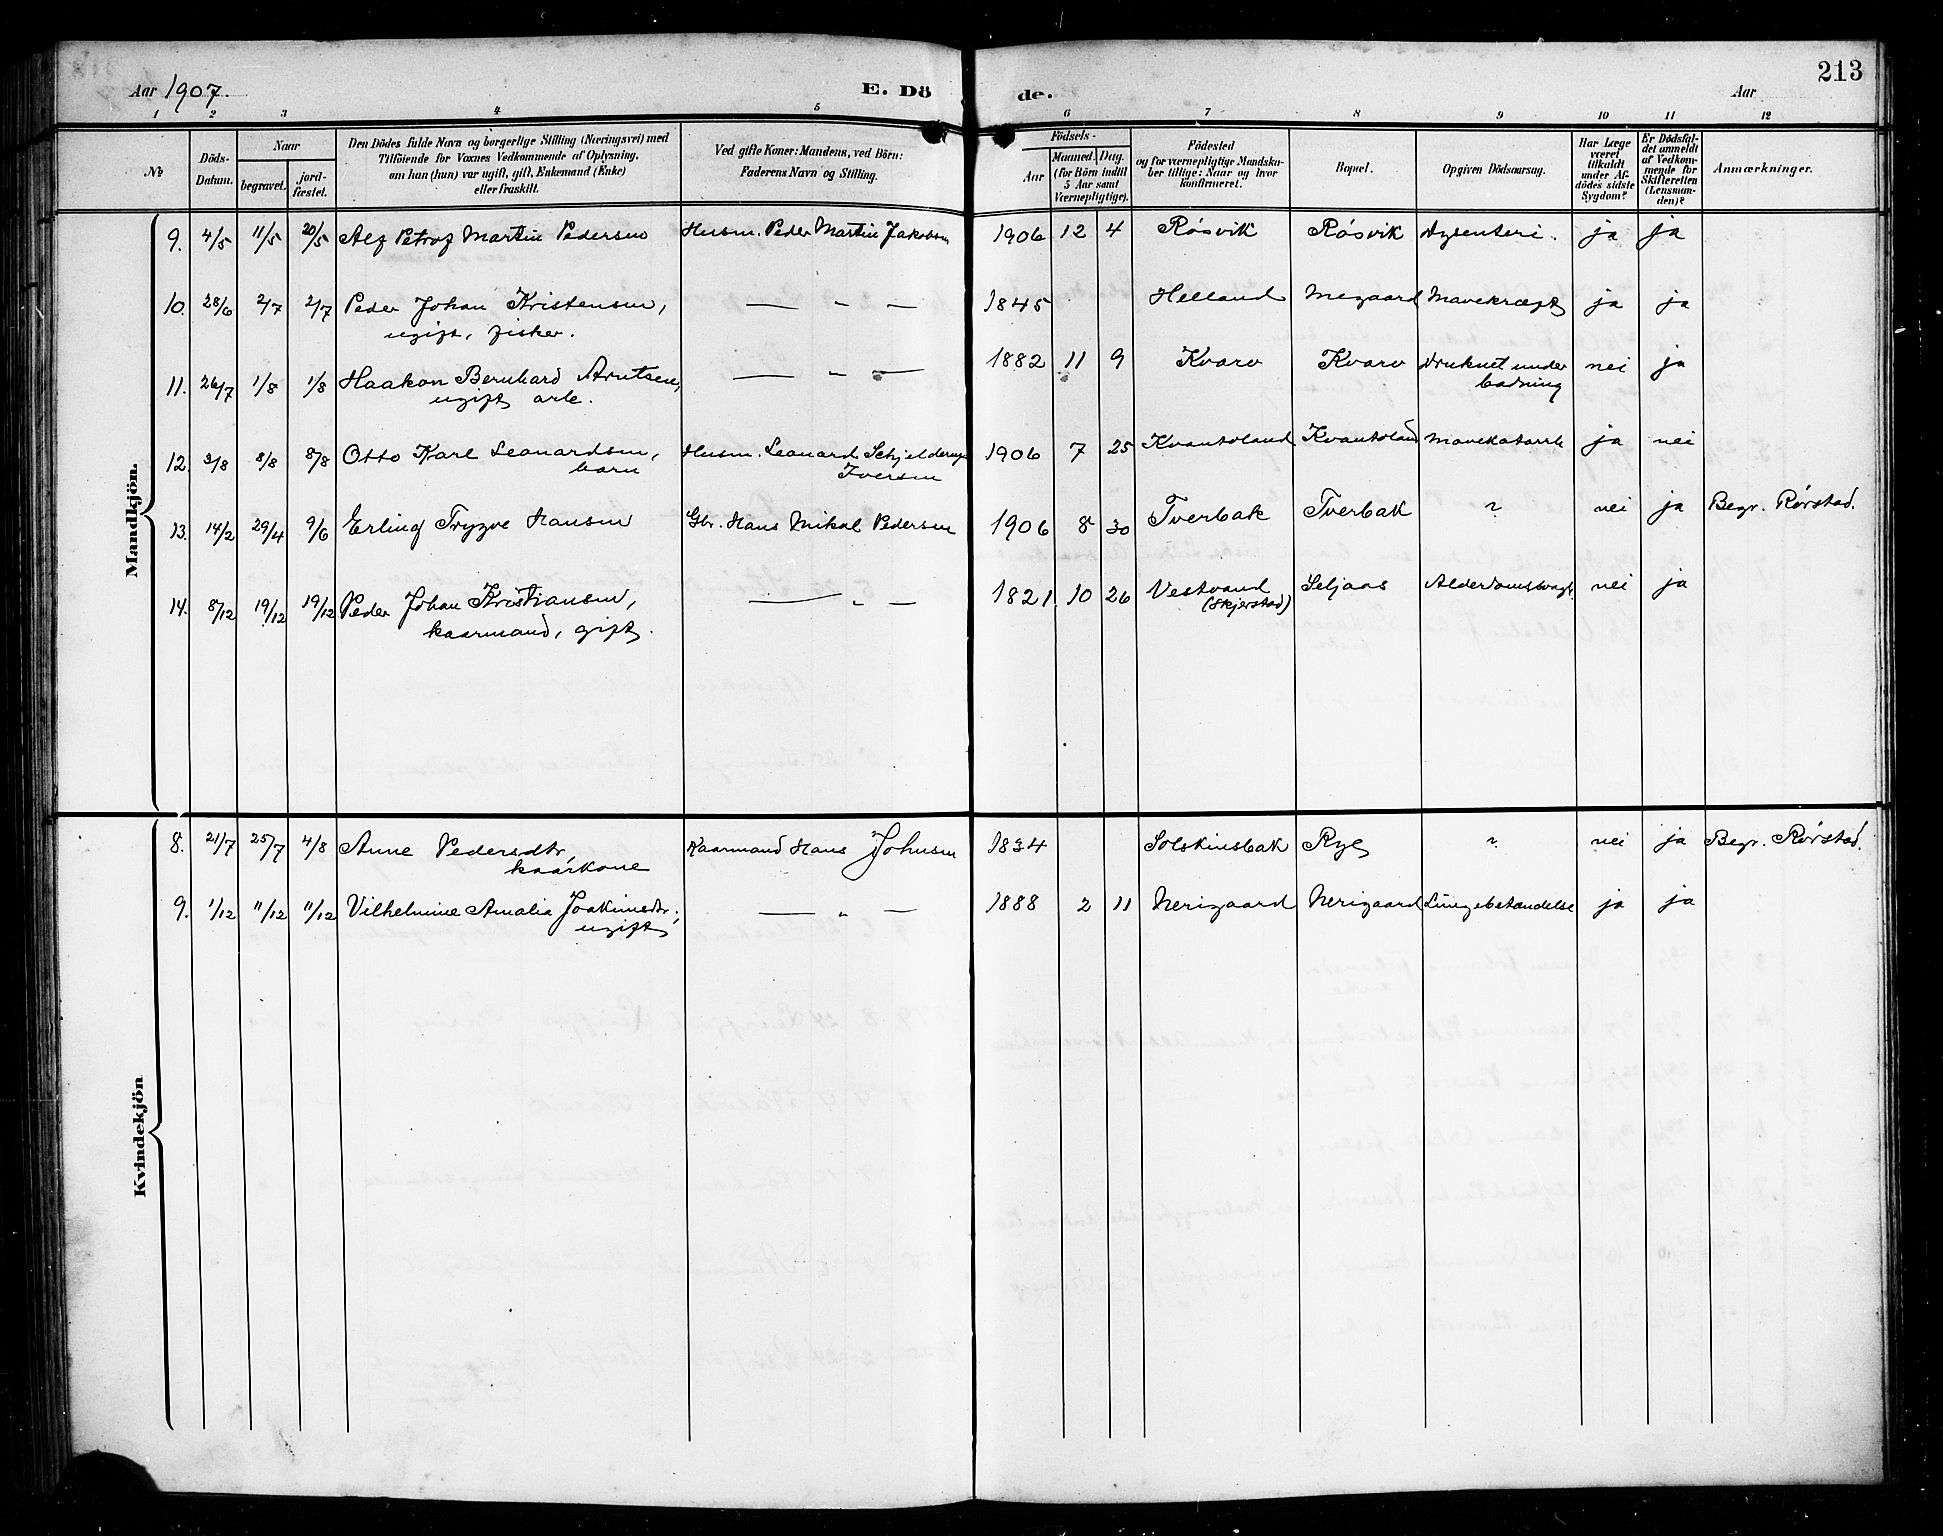 213
Aar 1907. E. Dö de. Aar
1 2 3 4 5 6 7 8 9 10 11 12
No
Döds-Datum.
Naar
begravet.
jord-fæstet.
Den Dödes fulde Navn og borgerlige Stilling (Næringsvei) med
Tilföiende for Voxnes Vedkommende af Oplysning,
om han (hun) var ugift, gift, Enkemand (Enke)
eller fraskilt.
Ved gifte Koner: Mandens, ved Börn:
Faderens Navn og Stilling.
Födsels-
Aar
Maaned. Dag.
(for Börn indtil
5 Aar samt
Værnepligtige).
Födested
og for værnepligtige Mandska-
ber tillige: Naar og hvor
konfirmeret.
Bopæl.
Opgiven Dödsaarsag.
Har Læge
været
tilkaldt
under Af-
dödes sidste
Sygdom?
Er Dödsfal-
det anmeldt
af Vedkom-
mende for
Skifteretten
(Lensman-
den)?
Anmærkninger.
Mandkjön.
9. 4/5 11/5 20/5 Alf Petrof Martin Pedersen Husm. Peder Martin Jakobsen 1906 12 4 Røsvik Røsvik Dysenteri. ja ja
10. 28/6 2/7 2/7 Peder Johan Kristensen, — " — 1845 Helland Megaard Mavekræft ja ja
ugift, fisker.
11. 26/7 1/8 1/8 Haakon Bernhard Arntsen, — " — 1882 11 9 Kvarv Kvarv Druknet under nei ja
ugift arb. badning
12. 3/8 8/8 8/8 Otto Karl Leonardsen, Husm. Leonard Schjelderup 1906 7 25 Kvantoland Kvantoland Mavekatarrh ja nei
barn Iversen
13. 14/2 29/4 9/6 Erling Trygve Hansen Gbr. Hans Mikal Pedersen 1906 8 30 Tverbak Tverbak ? nei ja Begr. Rørstad.
14. 8/12 19/12 19/12 Peder Johan Kristiansen, — " — 1821 10 26 Vestvand Seljaas Alderdomssvagh. nei ja
kaarmand, gift. (Skjerstad)
Kvindekjön
8. 21/7 25/7 4/8 Anne Pedersdtr. Kaarmand Hans Johnsen 1834 Solskinsbak Rye ? nei ja Begr. Rørstad.
kaarkone
9. 1/12 11/12 11/12 Vilhelmine Amalia Joakimsdtr., — " — 1888 2 11 Nerigaard Nerigaard Lungebetændelse ja ja
ugift